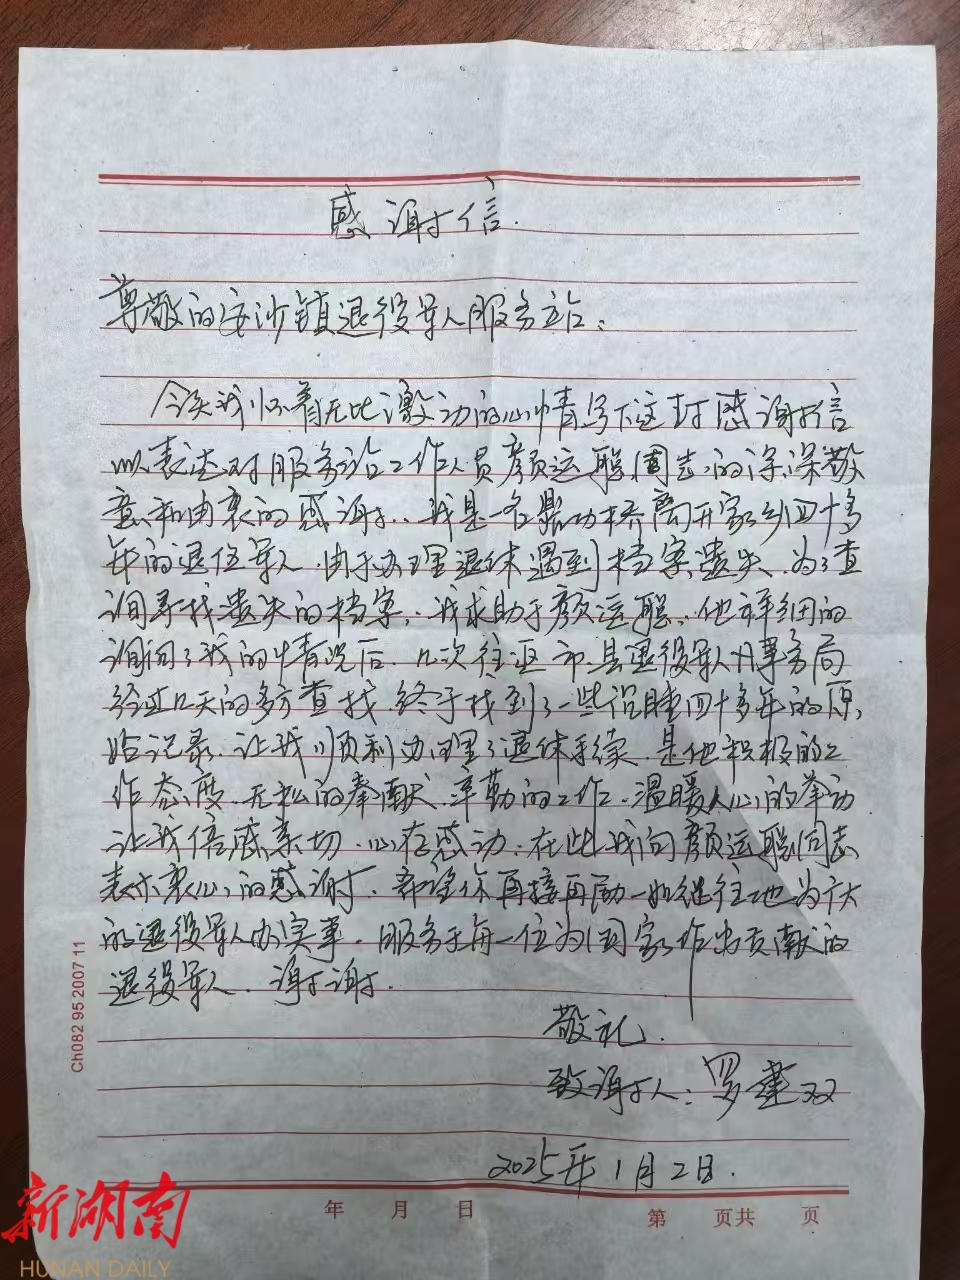 感谢信.
尊敬的安沙镇退役军人服务站:
今天我怀着无比激动的心情写下这封感谢信
以表达对服务站工作人员颜运聪同志的深深敬
意和由衷的感谢.我是一名 离开家乡四十多
年的退伍军人.由于办理退休遇到档案遗失.为了查
询寻找遗失的档案,我求助于颜运聪,他详细的
询问了我的情况后.几次往返市县退役军人事务局
经过几天的多方查找.终于找到了一些沉睡四十多年的原
始记录.让我顺利办理了退休手续.是他积极的工
作态度.无私的奉献.辛勤的工作.温暖人心的举动
让我倍感亲切.心存感动.在此我向颜运聪同志
表示衷心的感谢.希望你再接再励一如继往地为广大
的退役军人办实事.服务于每一位为国家作出贡献的
退役军人.谢谢.
敬礼.
致谢人:罗建双
2025年1月2日.
年 月 日 第 页共 页
Ch082 95 2007 11
新湖南
HUNAN DAILY